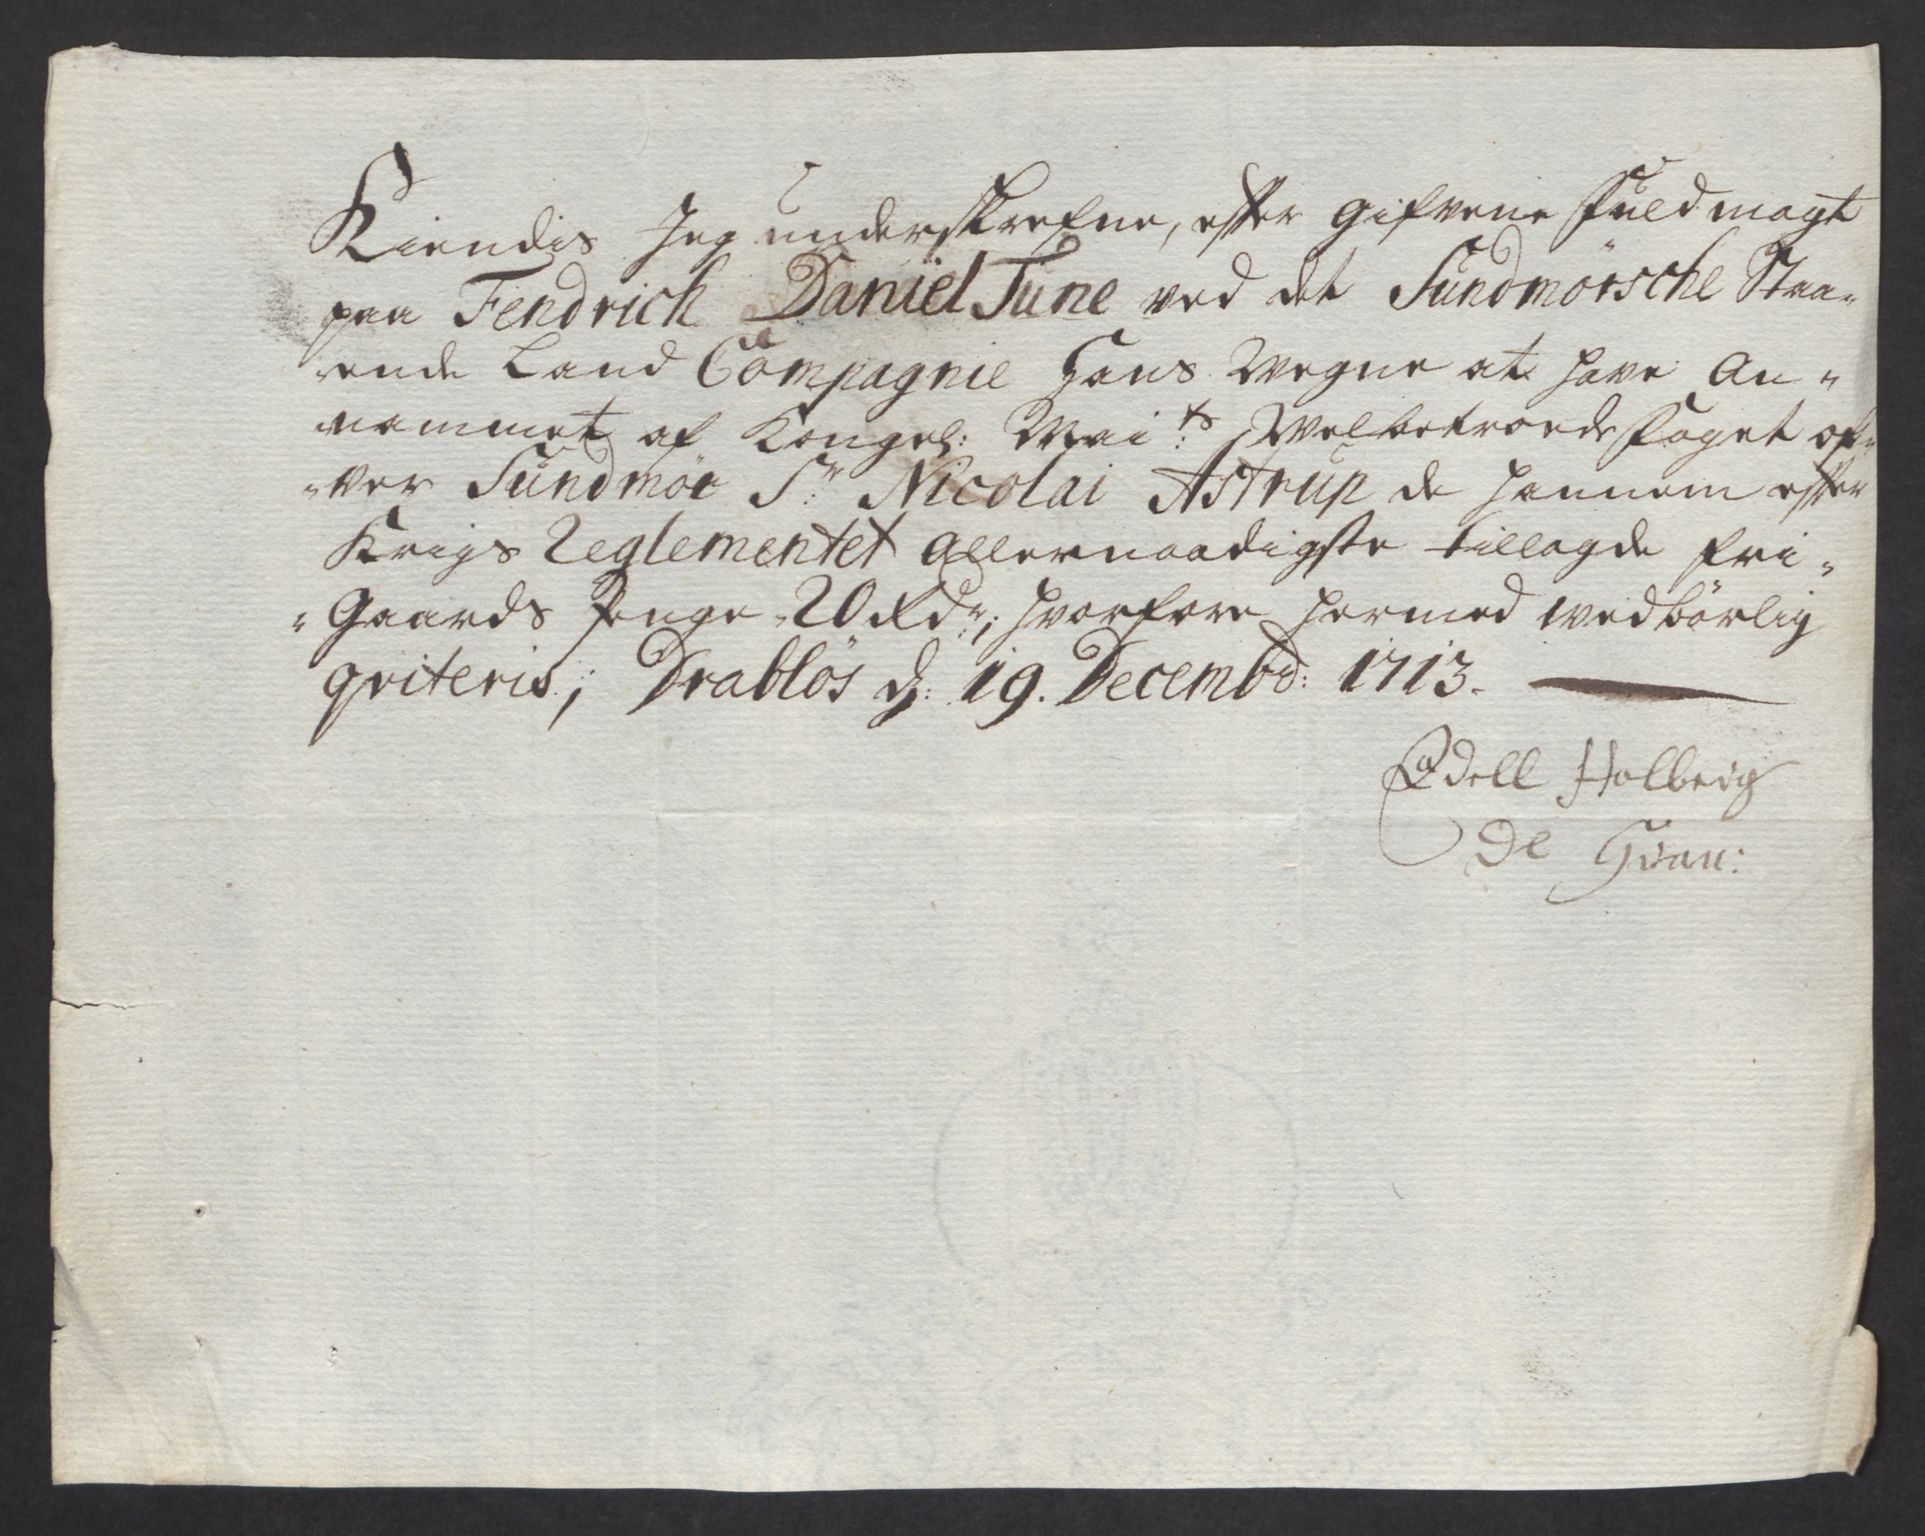 Kiendis Jeg underskrefne, effter gifvene Fuldmagt
paa Fendrich Daniel Tune ved det Sundmörsche Staa-
ende Land Compagnie Hans Wegne at have An-
nammet af Kongel: Mai:ts Welbetroede Foget of-
-ver Sundmöe Sr: Nicolai Astrup de hannem effter
Krigs Reglementet allernaadigste tillagde fri-
-Gaards Penge -20 Rdr:, hvorfore hermed wedbörlig
qviteris; Drablös d: 19. Decembr: 1713.
Edell Holberg
De